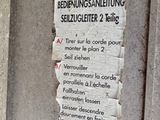 BEDIENUNGSANLEITUNG
SEILZUGLEITER 2 Teilig
A/ Tirer sur la corde pour
monter le plan 2
Seil ziehen
B/ Verrouiller
en ramenant la corde
parallèle à l'échelle
Fallhaken
einrasten lassen
Laisser descendre
doucement en